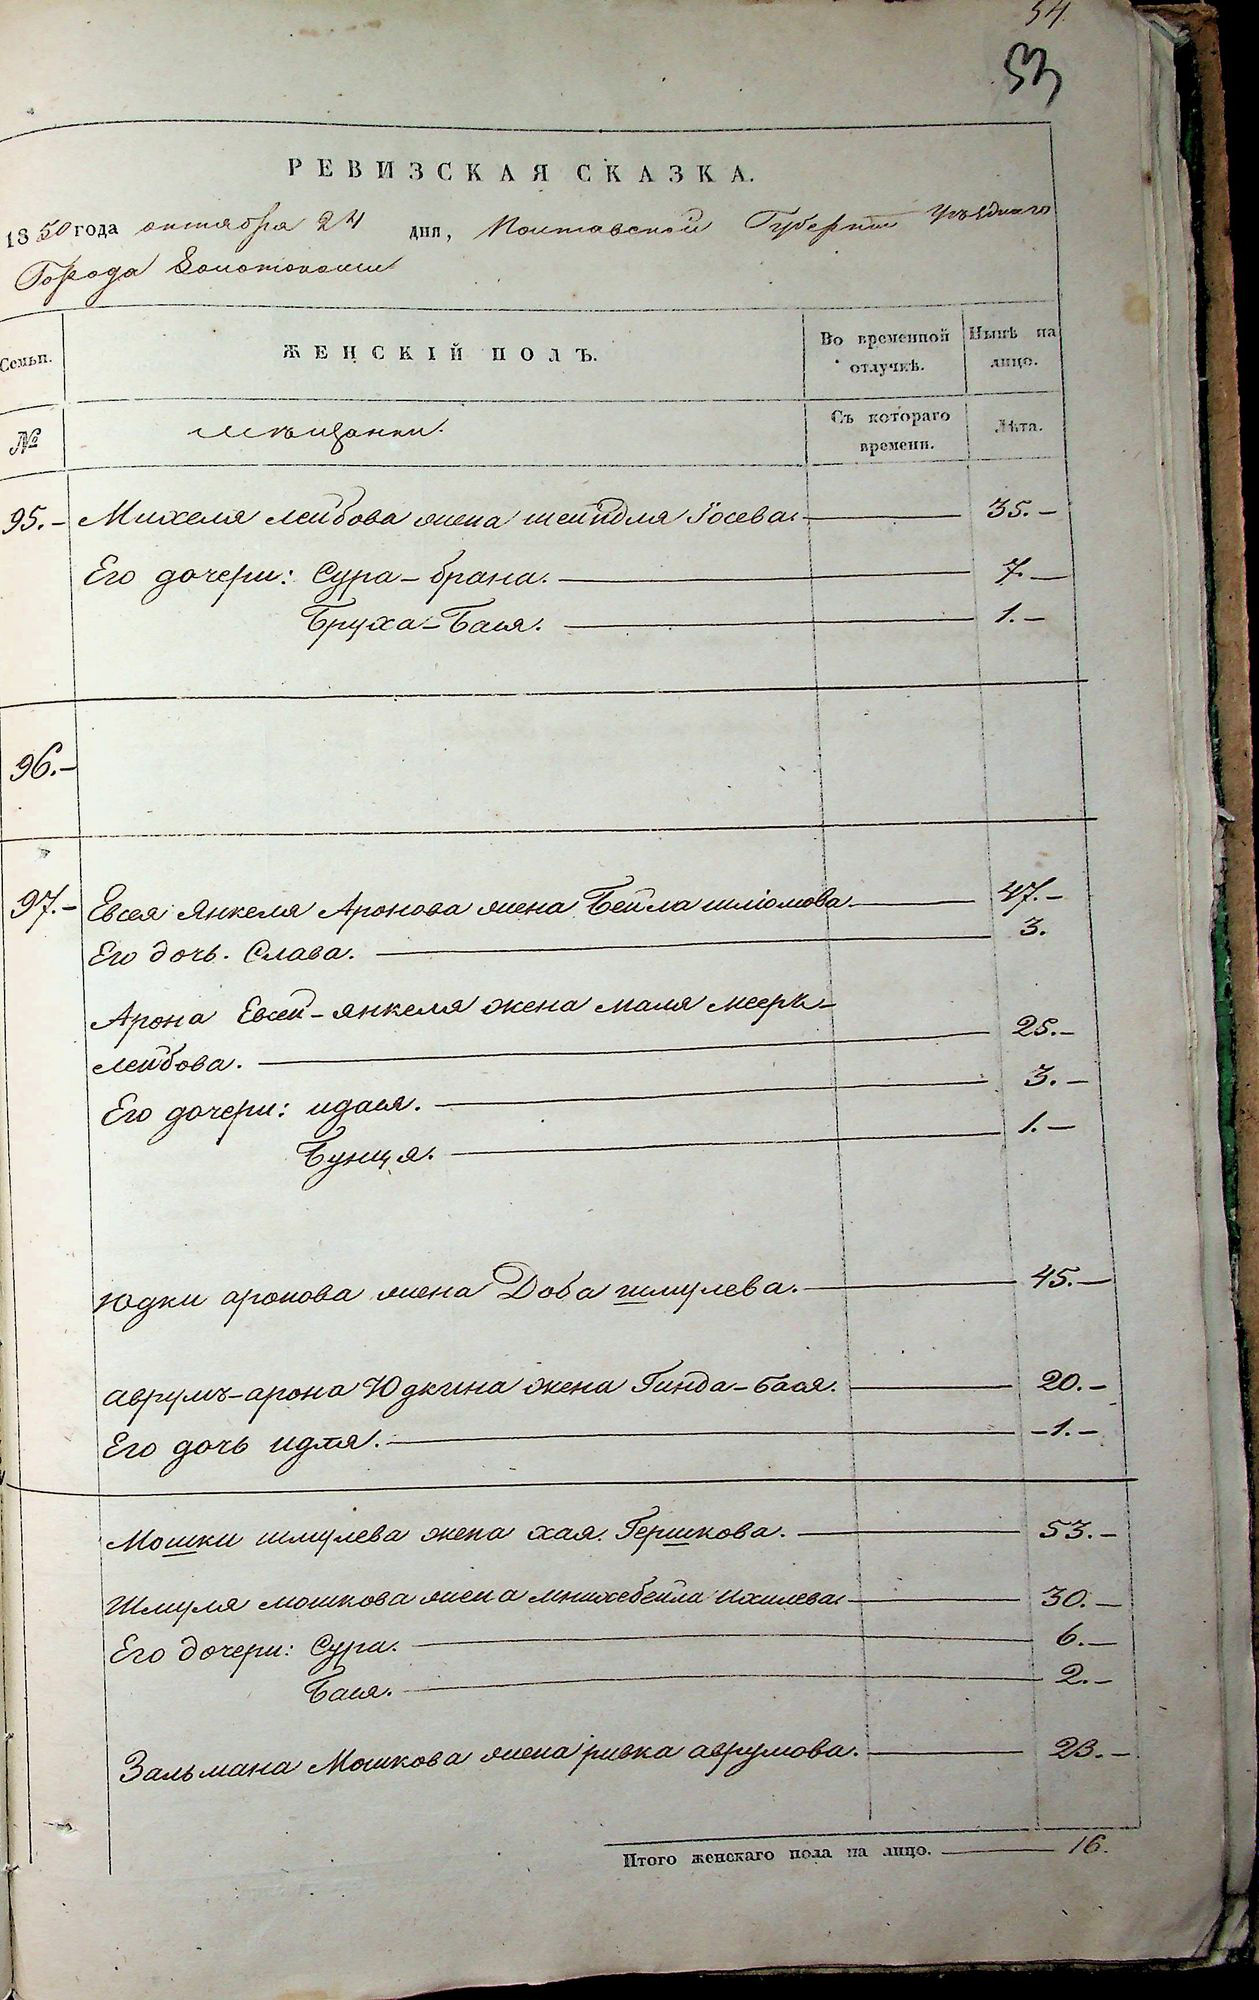 54.
53
РЕВИЗСКАЯ СКАЗКА.
1850 года октября 24 дня, Полтавской Губернии Уѣзднаго
Города Золотоноши
Семьи. ЖЕНСКІЙ ПОЛЪ. Во временной отлучкѣ. Нынѣ на лицо.
№ мѣщанки. Съ котораго времени. Лѣта.
95.- Михеля лейбова жена шейндля Іосева. 35.-
Его дочери: Сура-брана. 7.-
Бруха-Бася. 1.-
96.-
97.- Евсея Янкеля Аронова жена Бейла шліомова 47.-
Его дочь. Слава. 3.
Арона Евсей-янкеля жена маля мееръ-
лейбова. 25.-
Его дочери: идася. 3.-
Бунця. 1.-
Юдки аронова жена Доба шмулева. 45.-
аврумъ-арона Юдкина жена Гинда-бася. 20.-
Его дочь идля. -1.-
Мошки шмулева жена хая. Гершкова. 53.-
Шмуля мошкова жена мнихебейла ихилева 30.-
Его дочери: Сура. 6.-
Бася. 2.-
Зальмана Мошкова жена ривка аврумова. 23.-
Итого женскаго пола на лицо. 16.